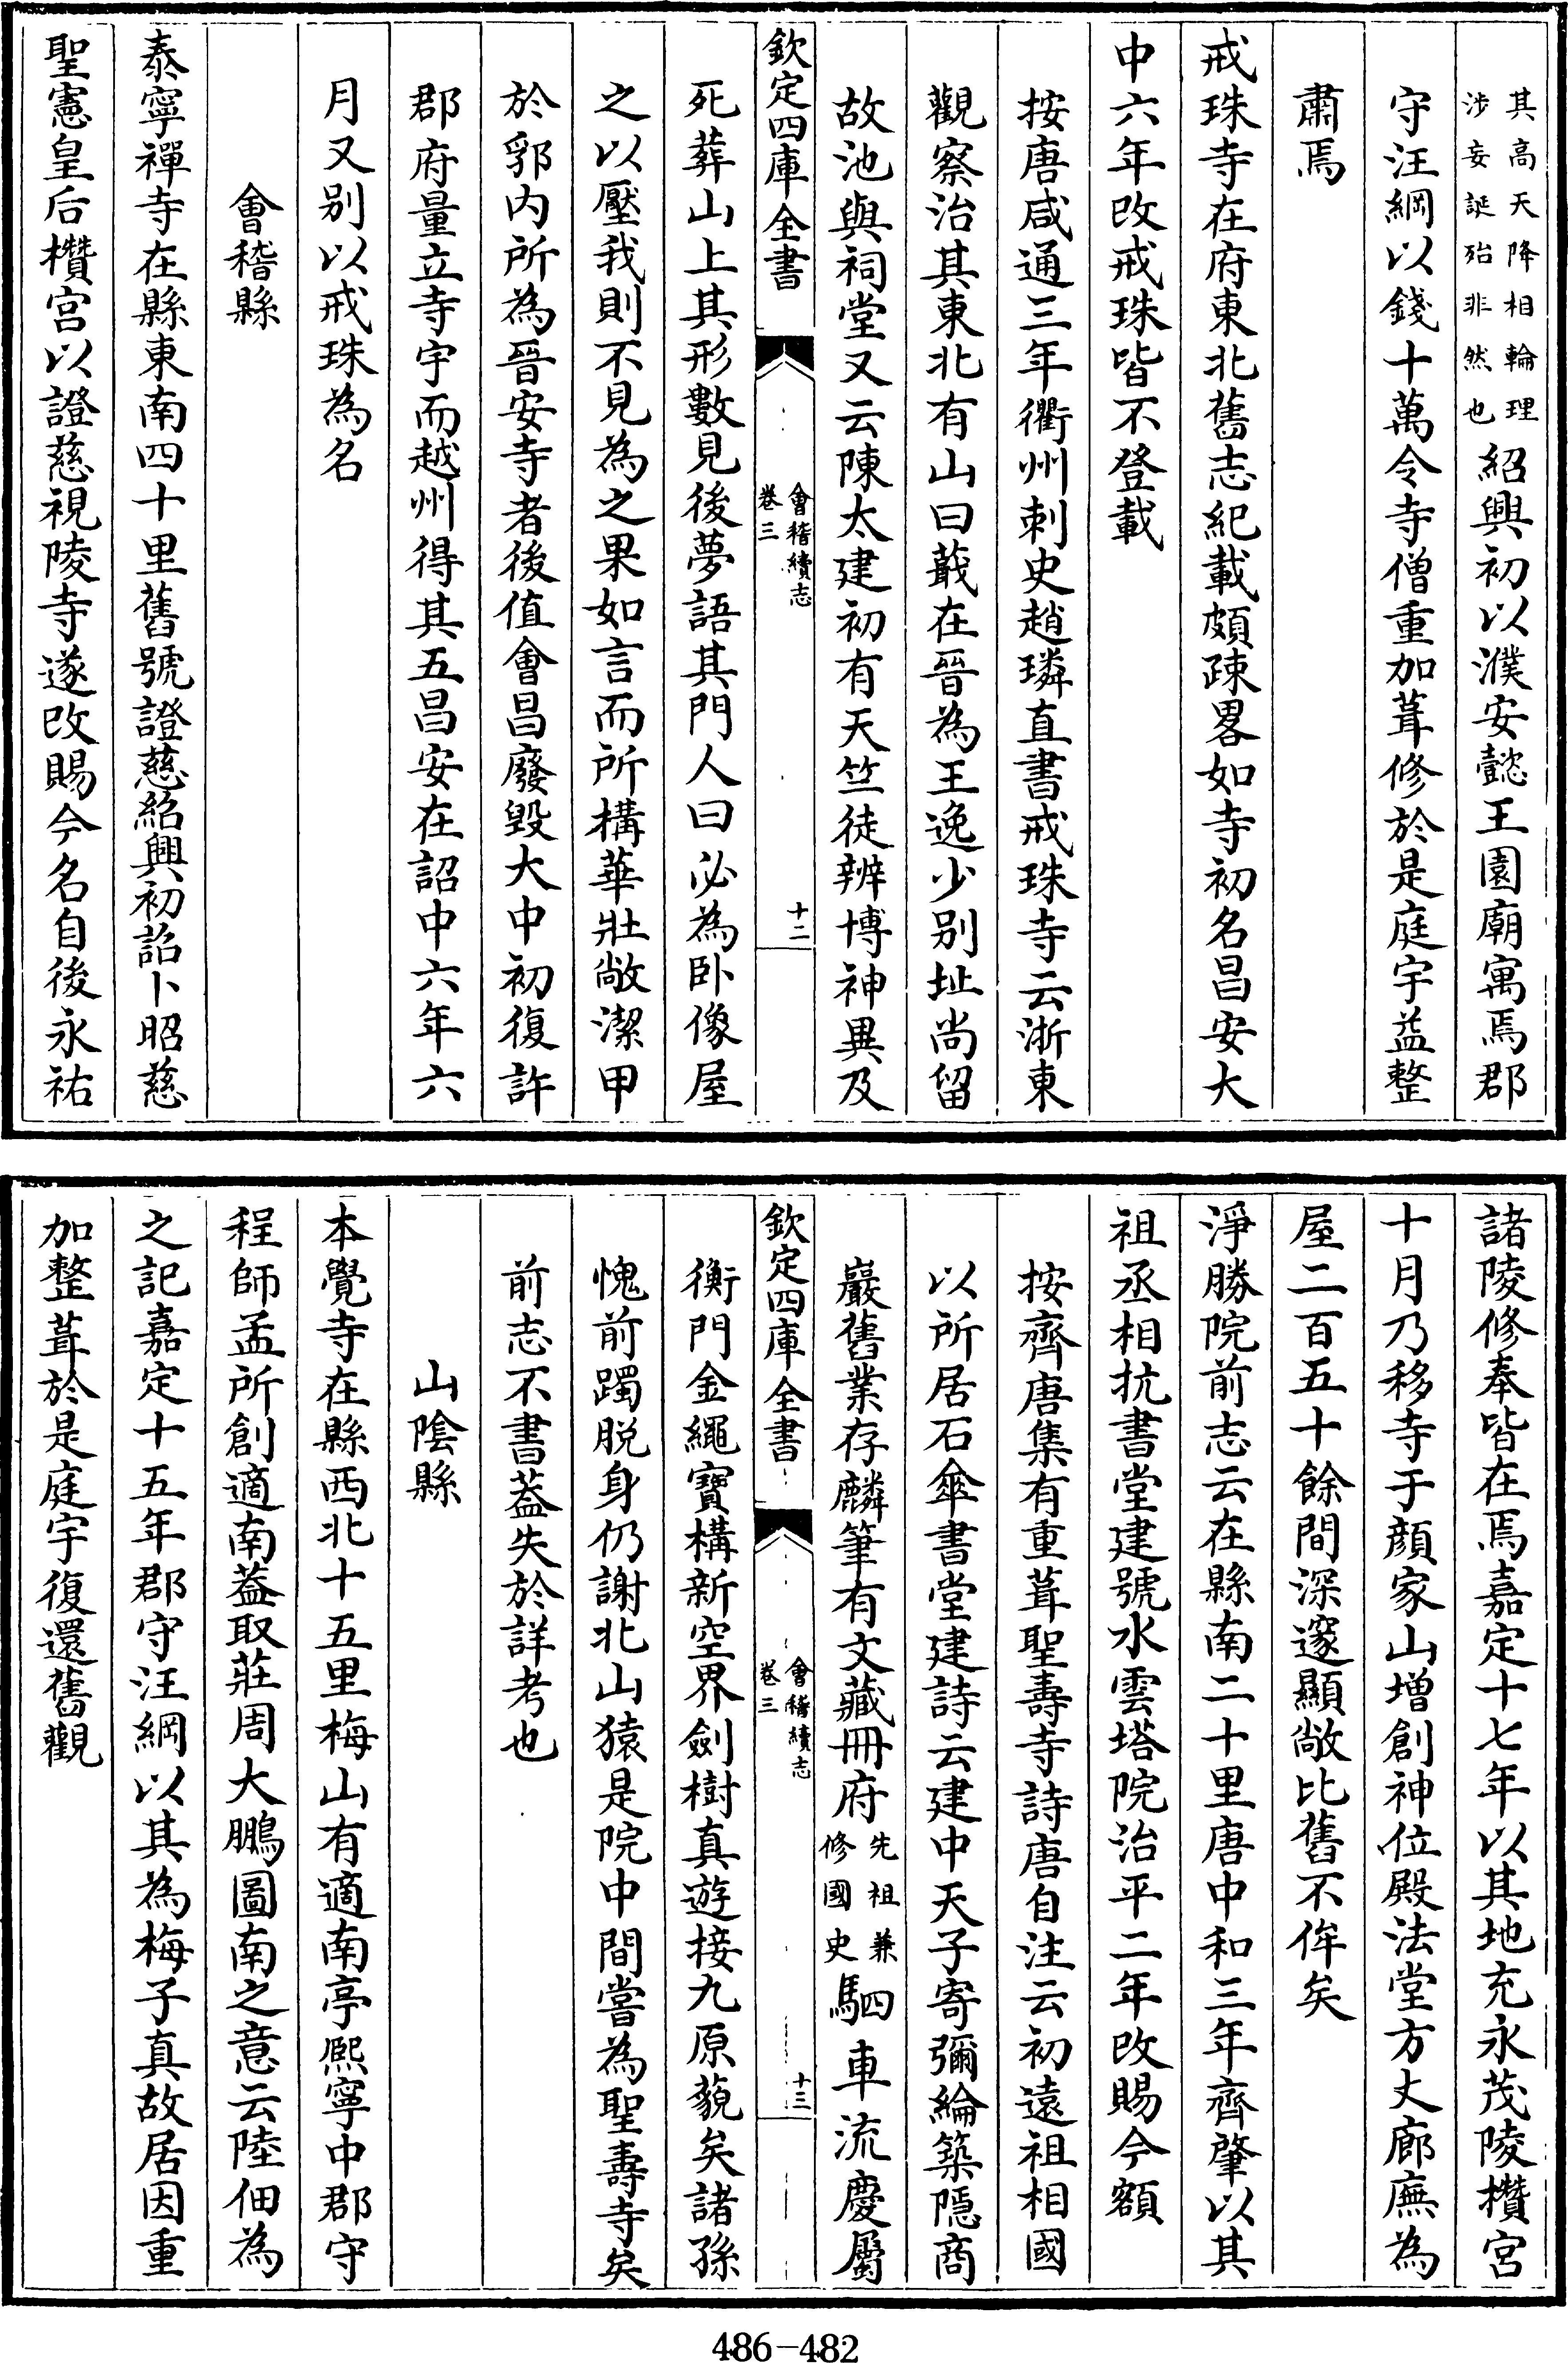 其高天降相輪理涉妄誕殆非然也紹興初以濮安懿王園廟寓焉郡
守汪綱以錢十萬令寺僧重加葺修於是庭宇益整
肅焉
戒珠寺在府東北舊志紀載頗疎畧如寺初名昌安大
中六年改戒珠皆不登載
按唐咸通三年衢州刺史趙璘直書戒珠寺云浙東
觀察治其東北有山曰蕺在晉為王逸少别址尚留
故池與祠堂又云陳太建初有天竺徒辨博神異及
欽定四庫全書
會稽續志
卷三
十二
死葬山上其形數見後夢語其門人曰必為卧像屋
之以壓我則不見為之果如言而所構華壯敞潔甲
於郛内所為晉安寺者後值會昌廢毁大中初復許
郡府量立寺宇而越州得其五昌安在詔中六年六
月又别以戒珠為名
會稽縣
泰寧禪寺在縣東南四十里舊號證慈紹興初詔卜昭慈
聖憲皇后欑宫以證慈視陵寺遂改賜今名自後永祐
諸陵修奉皆在焉嘉定十七年以其地充永茂陵欑宫
十月乃移寺于顔家山增創神位殿法堂方丈廊廡為
屋二百五十餘間深邃顯敞比舊不侔矣
淨勝院前志云在縣南二十里唐中和三年齊肇以其
祖丞相抗書堂建號水雲塔院治平二年改賜今額
按齊唐集有重葺聖壽寺詩唐自注云初遠祖相國
以所居石傘書堂建詩云建中天子寄彌綸築隱商
巖舊業存麟筆有文藏冊府先祖兼修國史駟車流慶屬
欽定四庫全書
會稽續志
卷三
十三
衡門金繩寶構新空界劍樹真遊接九原藐矣諸孫
愧前躅脱身仍謝北山猿是院中間嘗為聖壽寺矣
前志不書蓋失於詳考也
山陰縣
本覺寺在縣西北十五里梅山有適南亭熙寧中郡守
程師孟所創適南蓋取莊周大鵬圖南之意云陸佃為
之記嘉定十五年郡守汪綱以其為梅子真故居因重
加整葺於是庭宇復還舊觀
486-482